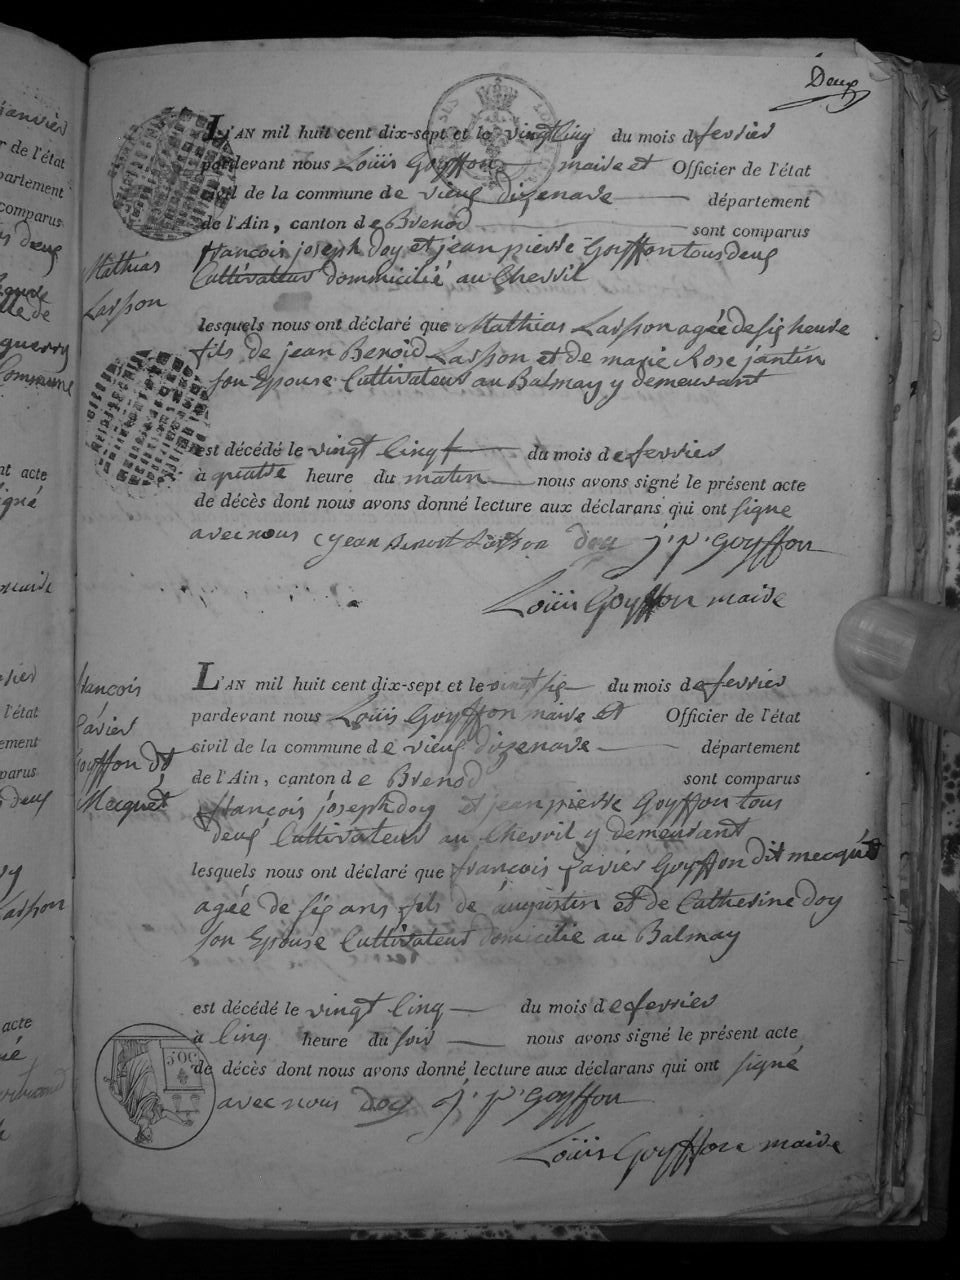 Deux
L'AN mil huit cent dix-sept et le vingt cinq du mois de fevrier
pardevant nous Louis Goyffon maire et Officier de l'état
civil de la commune de vieux dizenave département
de l'Ain, canton de Brenod sont comparus
françois joseph doy et jean pierre Goyffon tous deux
Cultivateur domicilié au Chevril
Mathias
Larsson
lesquels nous ont déclaré que Mathias Larsson agée de six heure
fils de jean Benoid Larsson et de marie Rose jantin
son Epouse Cultivateur au Balmay y demeurant
est décédé le vingt Cinq du mois de fevrier
à quatre heure du matin nous avons signé le présent acte
de décès dont nous avons donné lecture aux déclarans qui ont signe
avec nous jean Benoit Larsson doy j. p. Goyffon
Louis Goyffon maire
françois
Xavier
Goyffon dit
Mecquet
L'AN mil huit cent dix-sept et le vingt six du mois de fevrier
pardevant nous Louis Goyffon maire et Officier de l'état
civil de la commune de vieux dizenave département
de l'Ain, canton de Brenod sont comparus
françois joseph doy et jean pierre Goyffon tous
deux Cultivateur au Chevril y demeurant
lesquels nous ont déclaré que françois Xavier Goyffon dit mecquet
agée de six ans fils de augustin et de Catherine doy
son Epouse Cultivateur domicilié au Balmay
est décédé le vingt Cinq du mois de fevrier
à Cinq heure du soir nous avons signé le présent acte
de décès dont nous avons donné lecture aux déclarans qui ont signé
avec nous doy j. p. Goyffon
Louis Goyffon maire